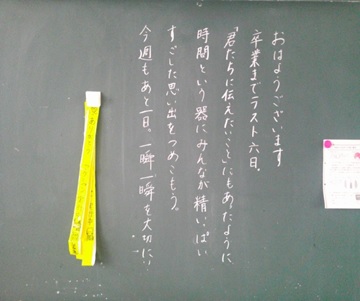 おはようございます
卒業までラスト六日。
「君たちに伝えたいこと」にもあたように
時間という器にみんなが精いぱい
すごした思い出をつめこもう。
今週もあと一日。一瞬一瞬を大切に!!